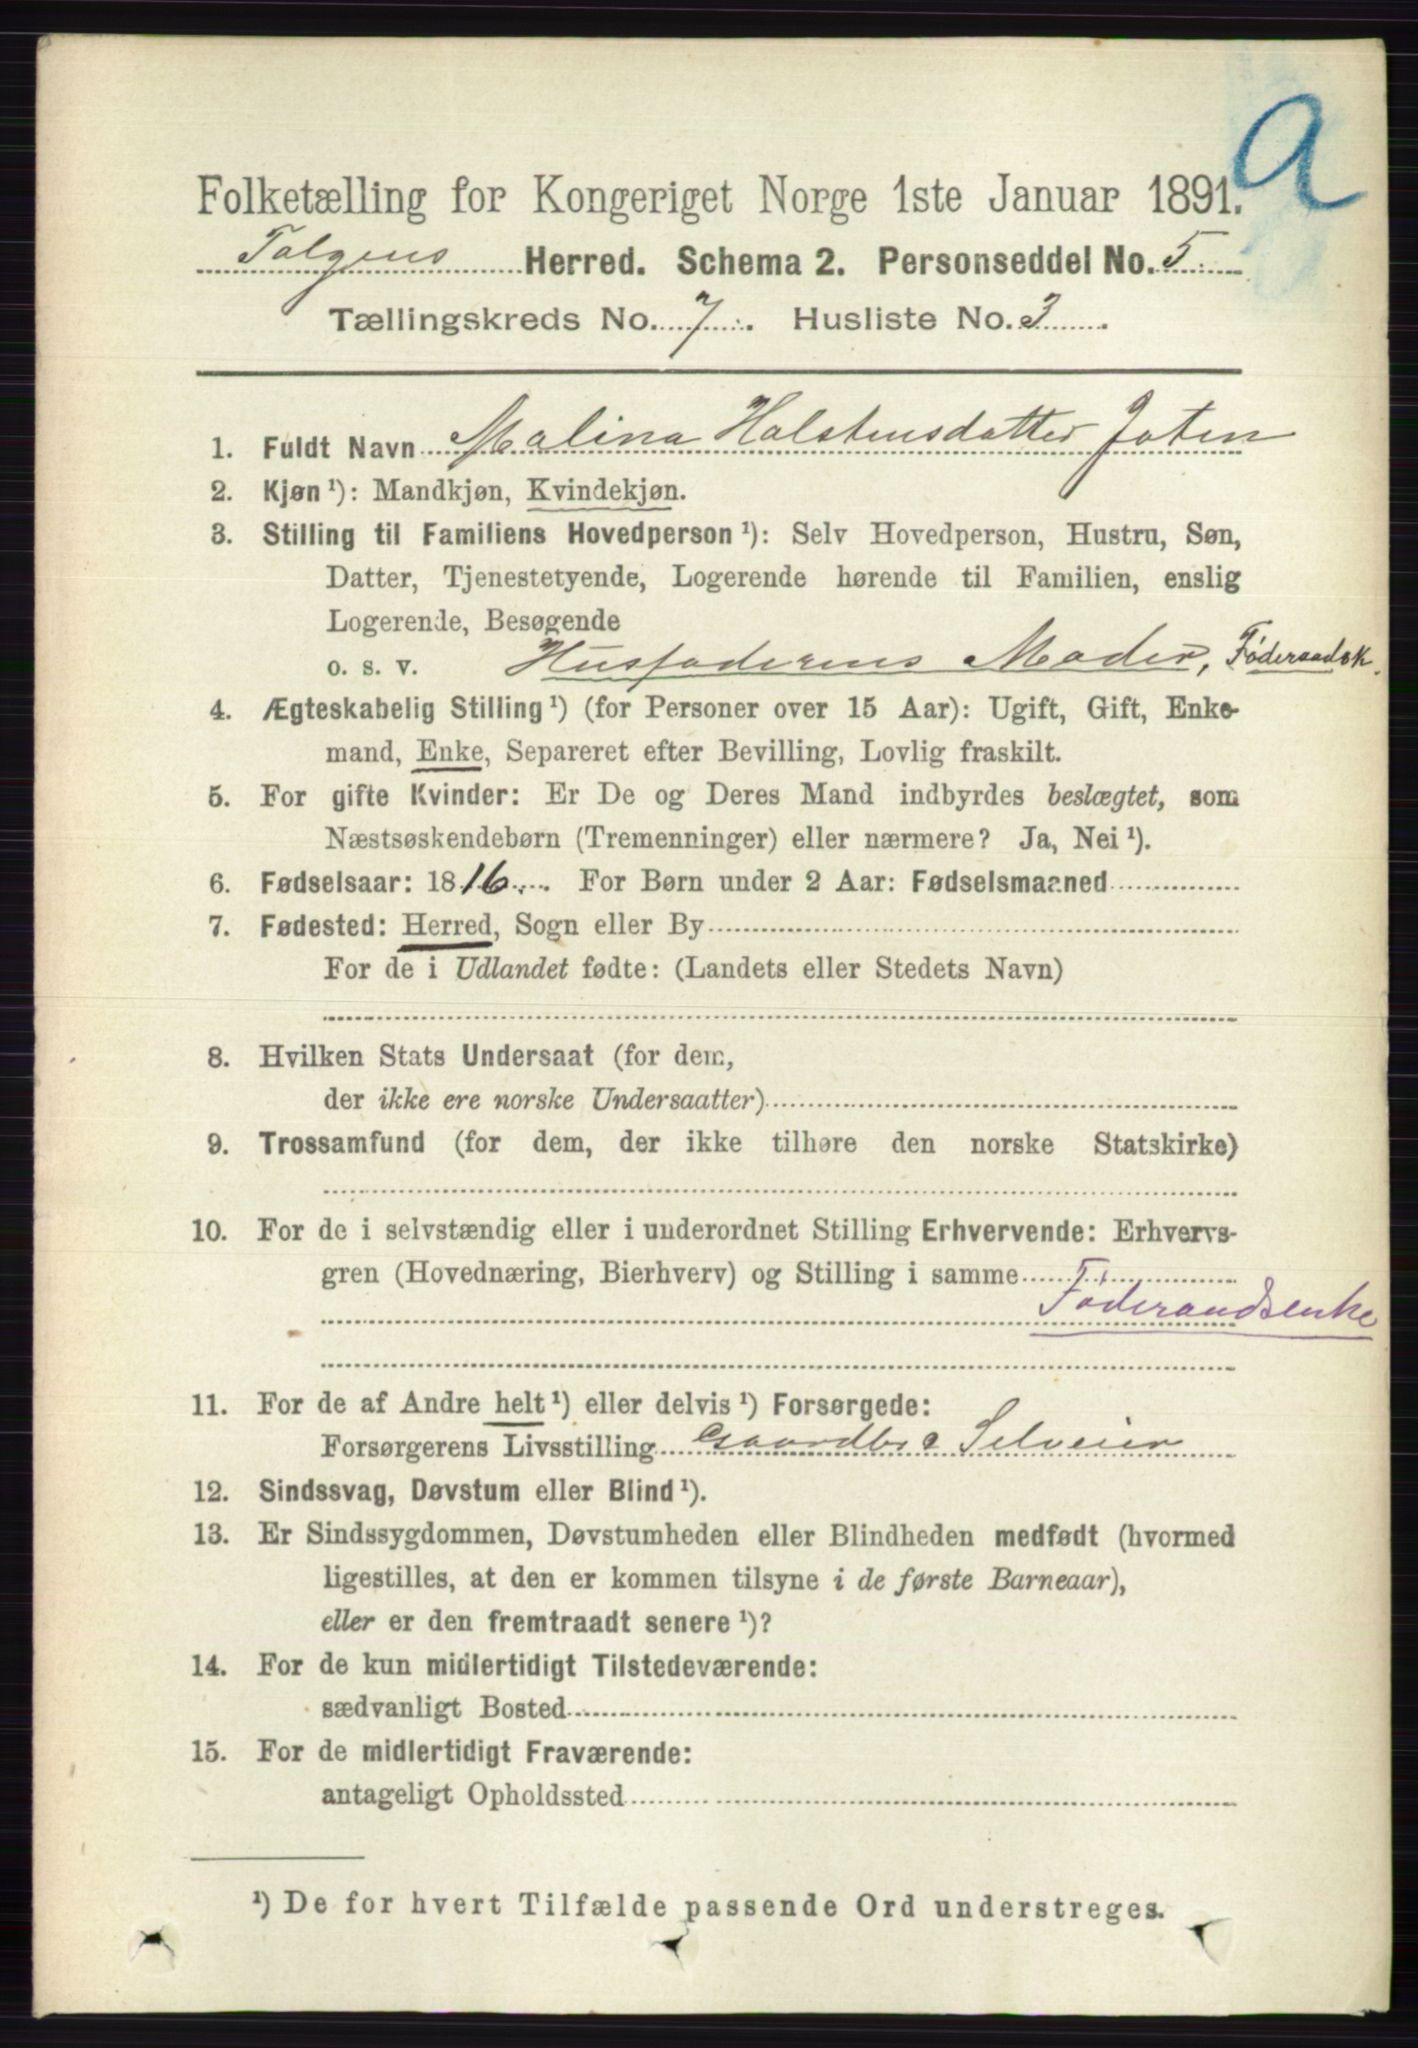 a
Folketælling for Kongeriget Norge 1ste Januar 1891.
Tolgens Herred. Schema 2. Personseddel No. 5
Tællingskreds No. 7. Husliste No. 3.
1. Fuldt Navn Malina Halstensdatter Joten
2. Kjøn ¹): Mandkjøn, Kvindekjøn.
3. Stilling til Familiens Hovedperson ¹): Selv Hovedperson, Hustru, Søn,
Datter, Tjenestetyende, Logerende hørende til Familien, enslig
Logerende, Besøgende
o. s. v. Husfaderens Moder, Föderaadsk.
4. Ægteskabelig Stilling ¹) (for Personer over 15 Aar): Ugift, Gift, Enke-
mand, Enke, Separeret efter Bevilling, Lovlig fraskilt.
5. For gifte Kvinder: Er De og Deres Mand indbyrdes beslægtet, som
Næstsøskendebørn (Tremenninger) eller nærmere? Ja, Nei ¹).
6. Fødselsaar: 1816. For Børn under 2 Aar: Fødselsmaaned
7. Fødested: Herred, Sogn eller By
For de i Udlandet fødte: (Landets eller Stedets Navn)
8. Hvilken Stats Undersaat (for dem,
der ikke ere norske Undersaatter)
9. Trossamfund (for dem, der ikke tilhøre den norske Statskirke)
10. For de i selvstændig eller i underordnet Stilling Erhvervende: Erhvervs-
gren (Hovednæring, Bierhverv) og Stilling i samme
Föderaadsenke
11. For de af Andre helt ¹) eller delvis ¹) Forsørgede:
Forsørgerens Livsstilling Gaardbr Selveier
12. Sindssvag, Døvstum eller Blind ¹).
13. Er Sindssygdommen, Døvstumheden eller Blindheden medfødt (hvormed
ligestilles, at den er kommen tilsyne i de første Barneaar),
eller er den fremtraadt senere ¹)?
14. For de kun midlertidigt Tilstedeværende:
sædvanligt Bosted
15. For de midlertidigt Fraværende:
antageligt Opholdssted
¹) De for hvert Tilfælde passende Ord understreges.